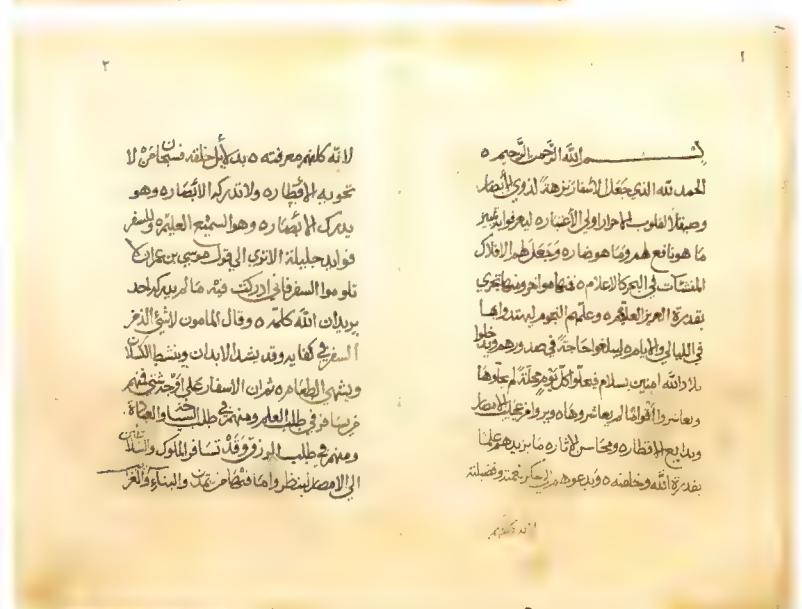 ١
بسم الله الرحمن الرحيم ه
الحمد لله الذي جعل الاسفار نزهة لذوي الأبصار
وصقلا لقلوب الاحرار اولي الاعتبار ه ليعرفوا به تمييز
ما هو نافع لهم وما هو ضار ه وجعل لهم الافلاك
المنشئات في البحر كالاعلام ه فمنها مواخر ومنها تجري
بقدرة العزيز العليم ه وعلمهم النجوم ليهتدوا بها
في الليالي والايام ه ليبلغوا حاجة في صدورهم ويدخلوا
بلاد الله امنين بسلام فيحلوا كل يوم محلة لم يحلوها
ويعاشروا أقواما لم يعاشروها ه ويروا من عجايب الامصار
وبدايع الاقطار ه ومحاسن الاثار ه ما يزيدهم علما
بقدرة الله وخلقه ه ويدعوهم الي شكر نعمته وفضيلته
٢
لانه كلفهم معرفته ه بدلايل خلقه فسبحان من لا
تحويه الاقطار ه ولا تدركه الابصار ه وهو
يدرك الابصار ه وهو السميع العليم ه وللسفر
فوايد جليلة الا تري الي قول موسي بن عمران لا
تلوموا السفر فاني ادركت فيه ما لم يدركه احد
يريد ان الله كلمه ه وقال المامون لا شي الذ من
السفر في كفايه وقد يشد الابدان وينشط الكسلان
ويشهي الطعام ه ثم ان الاسفار علي اوجه شتي فمنهم
من يسافر في طلب العلم ومنهم في طلب السياحة والعبادة
ومنهم في طلب الرزق وقد تسافر الملوك والسلاطين
الي الامصار لينظروا ما فيها من تمدن والبناء